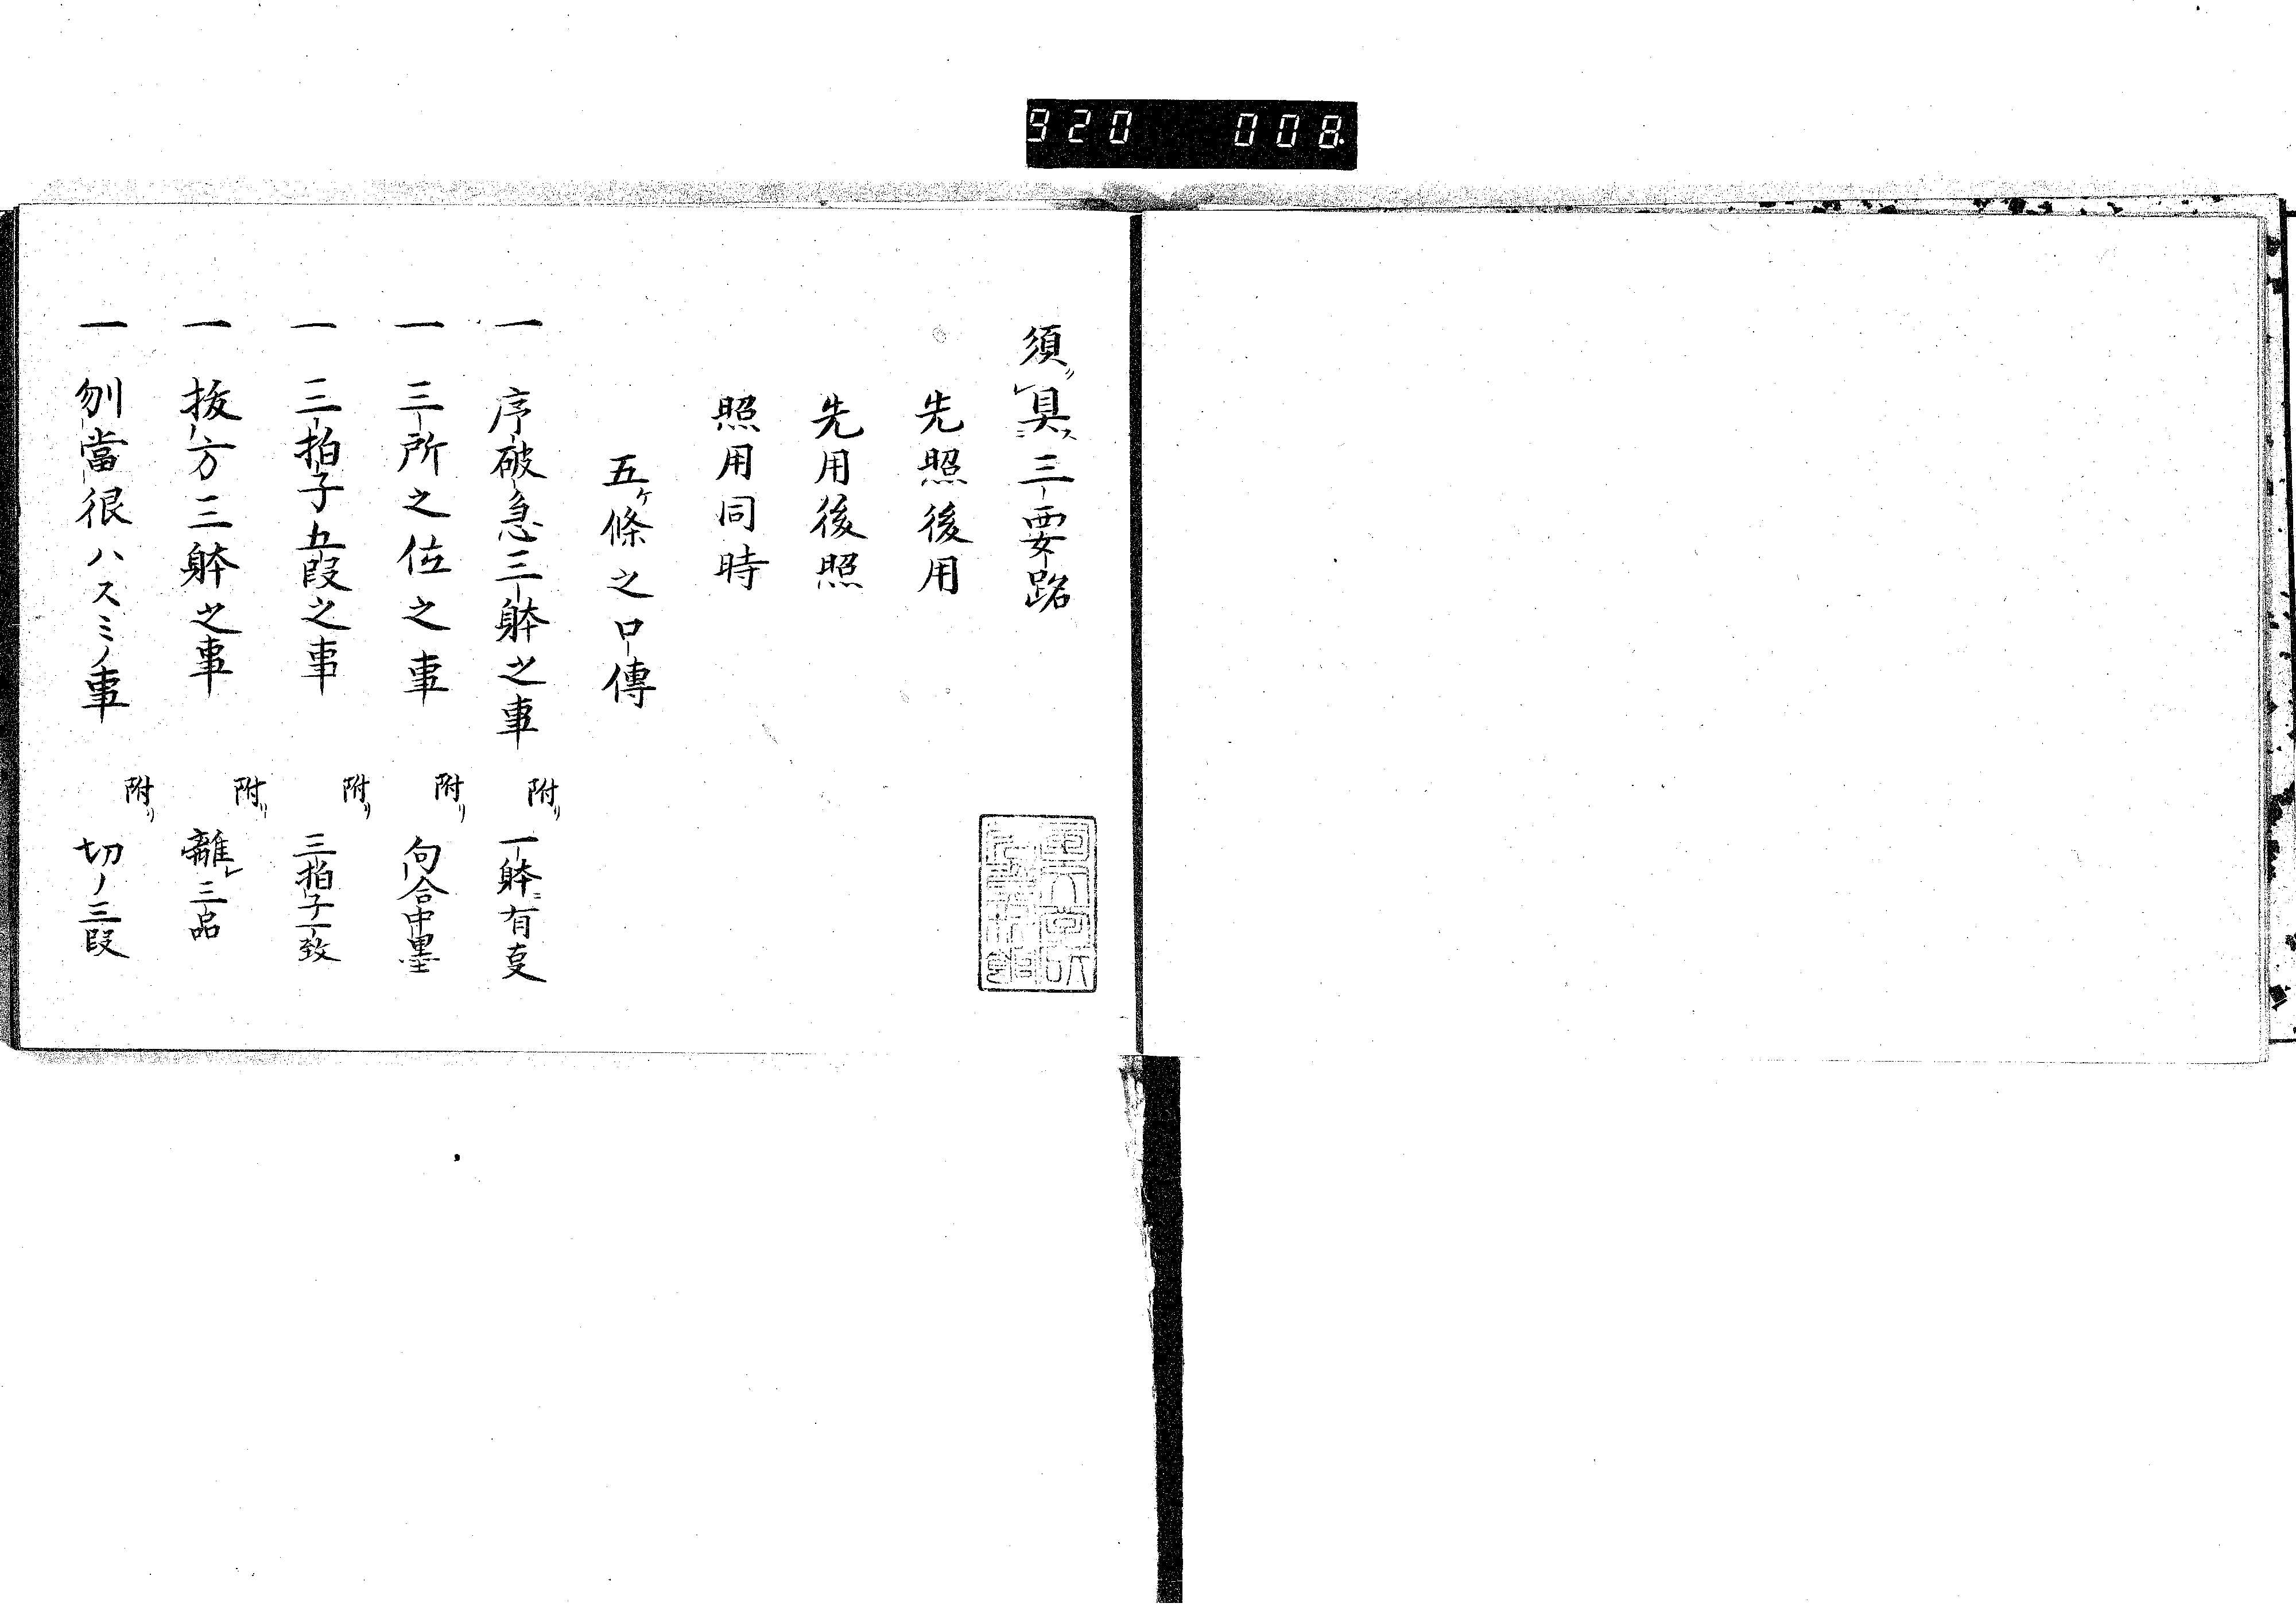 920 008
須ク具ス三要路
先照後用
先用後照
照用同時
五ケ條之口傳
一 序破急三躰之事 附リ 一躰ニ有変
一 三所之位之事 附リ 向合中墨
一 三拍子五段之事 附リ 三拍子一致
一 抜方三躰之事 附リ 離レ三品
一 當很ハスミノ事 附リ 切ノ三段